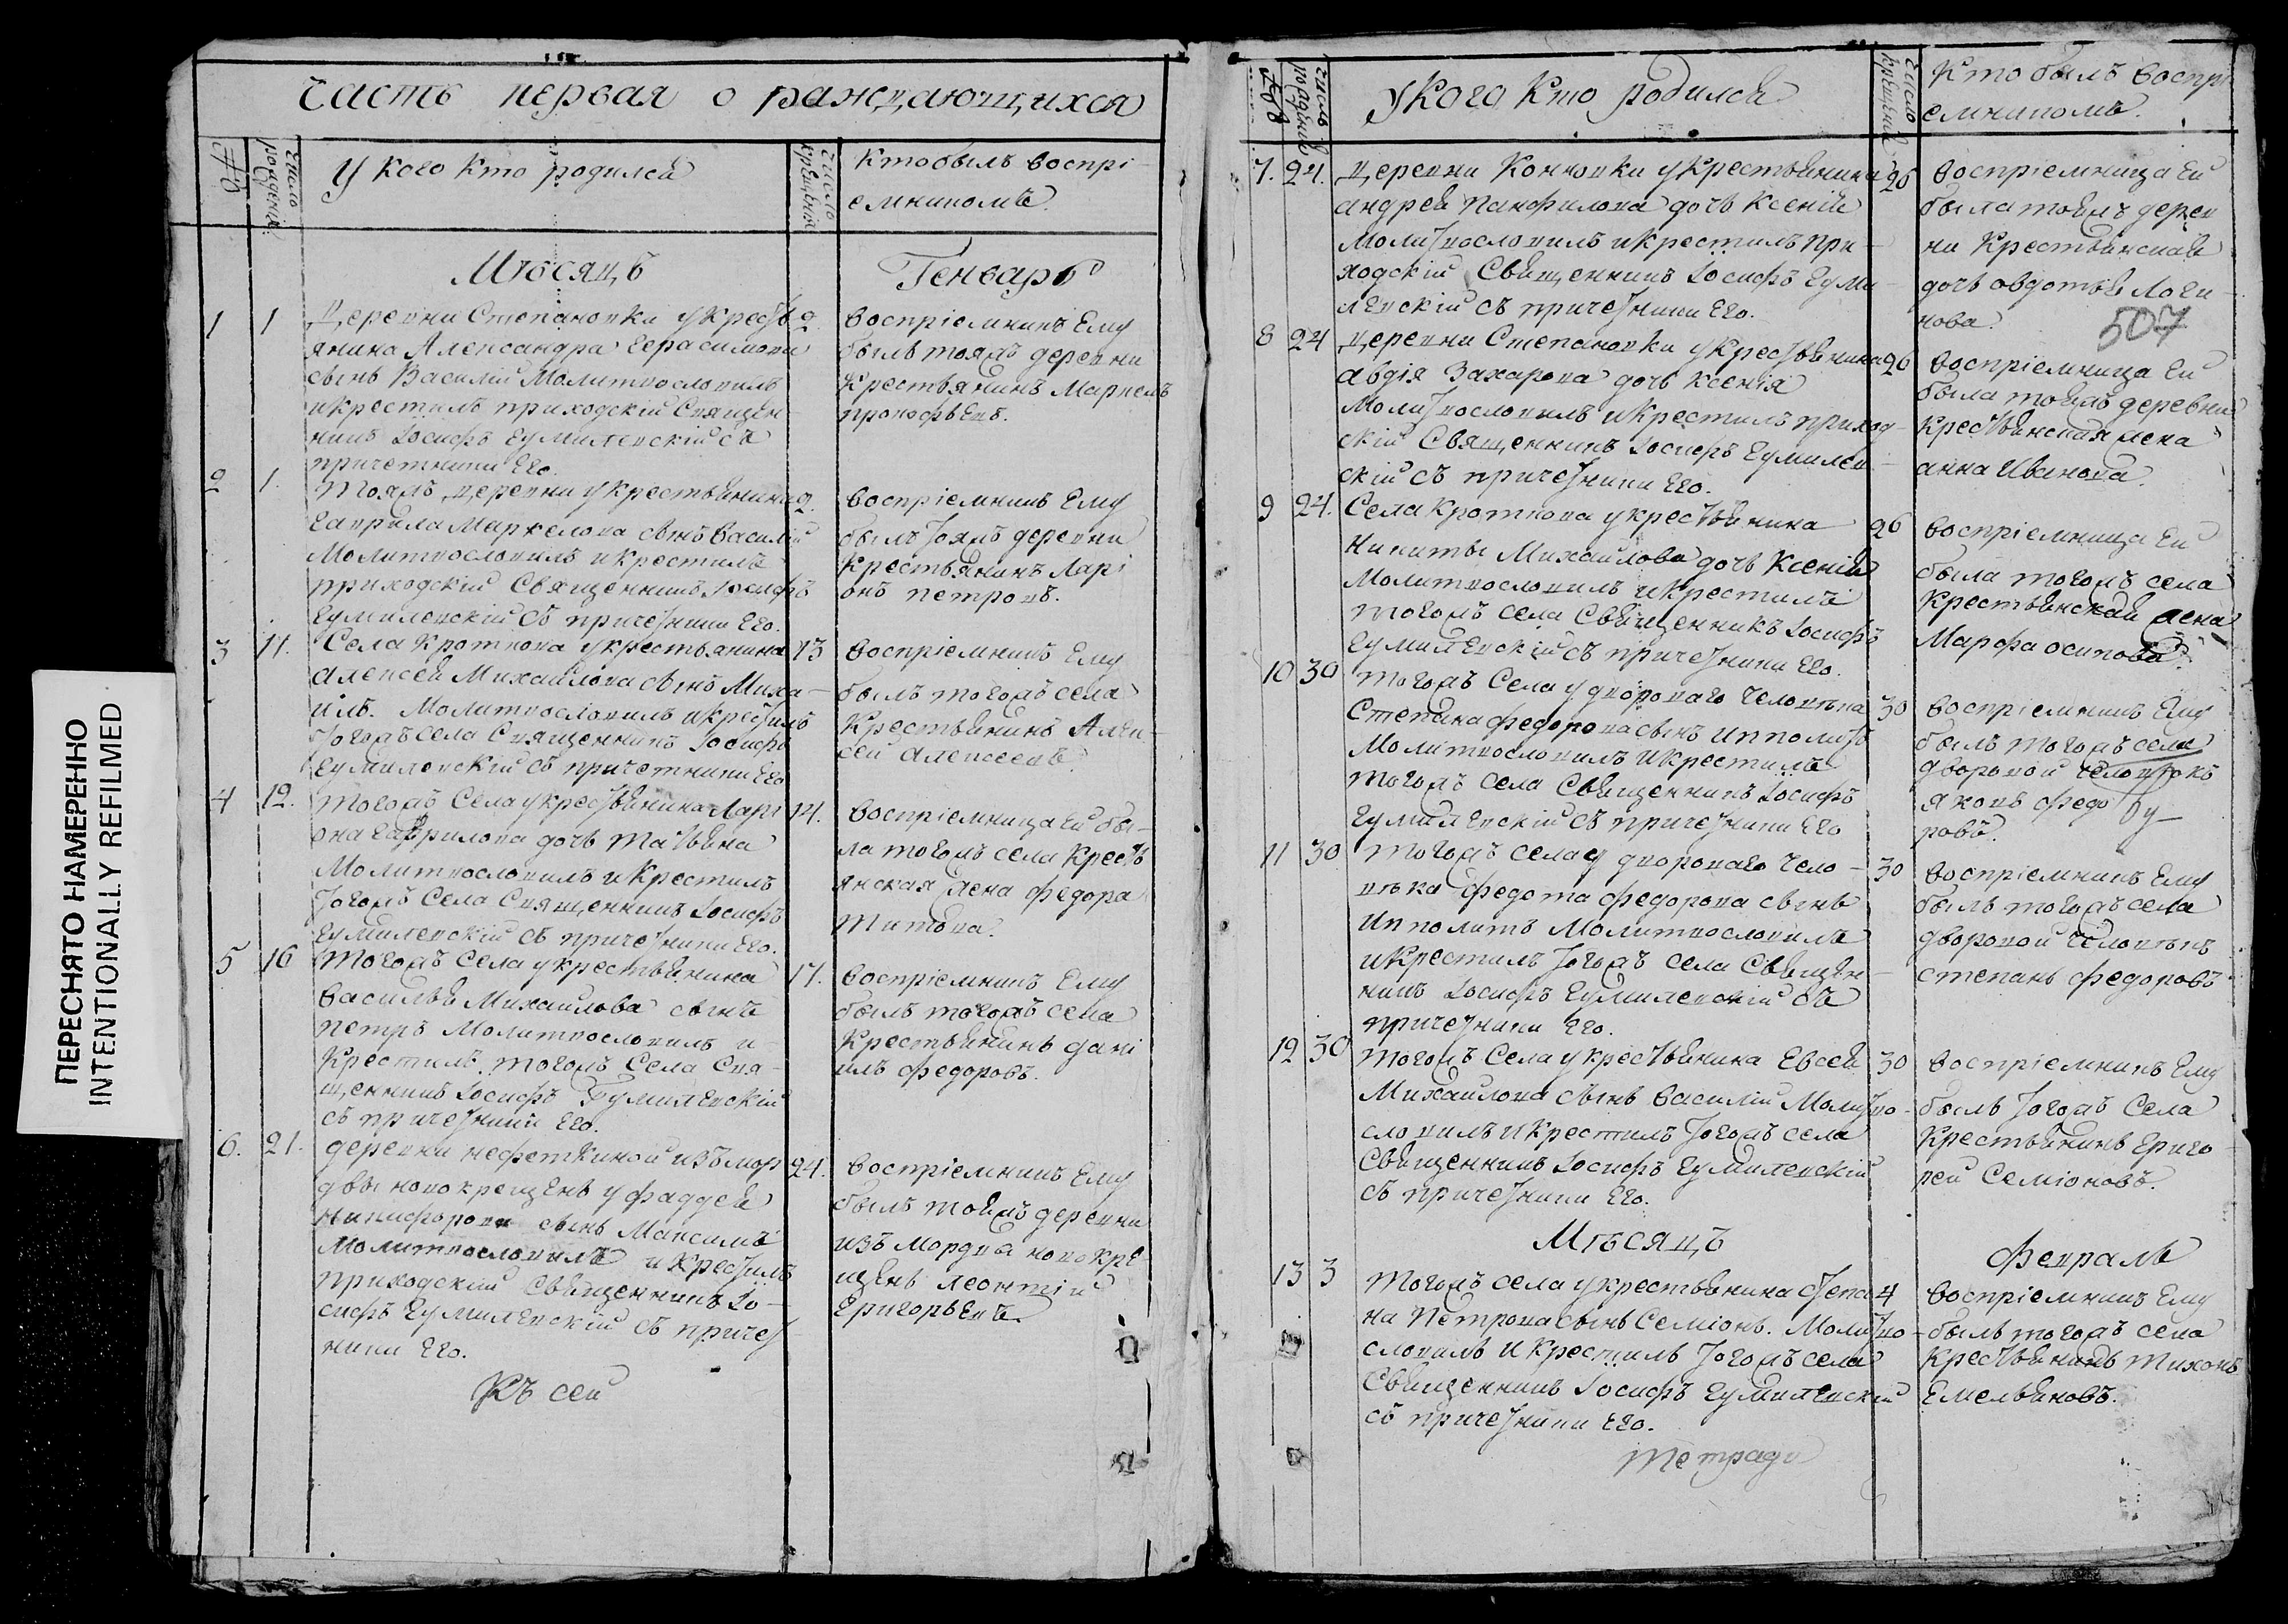 ПЕРЕСНЯТО НАМЕРЕННО
INTENTIONALLY REFILMED
Часть первая о раждающихся
№
Число рожденія
У кого кто родился
Число крещенія
Кто былъ воспрі
емникомъ.
Мѣсяцъ
Генварь
1
1
Деревни Степановки у кресть
янина Александра Герасимова
сынъ Василій Молитвословилъ
и крестилъ приходскій Священ-
никъ Іосифъ Гумилевскій съ
причетники Его.
2
воспріемникъ Ему
былъ тояжъ деревни
Крестьянинъ Маркелъ
прокофьевъ.
2
1.
Тояжъ деревни у крестьянина
Гаврила Маркелова сынъ Василій
Молитвословилъ и крестилъ
приходскій Священникъ Іосифъ
Гумилевскій съ причетники Его.
2.
воспріемникъ Ему
былъ тояжъ деревни
Крестьянинъ Ларі
онъ петровъ.
3
11.
Села Кроткова у крестьянина
Алексея Михайлова сынъ Миха-
илъ. Молитвословилъ и крестилъ
тогожъ села Священникъ Іосифъ
Гумилевскій съ причетники Его
13
воспріемникъ Ему
былъ тогожъ села
Крестьянинъ Але-
сей Алексеевъ.
4
12.
Тогожъ Села у крестьянина Лари
она Гаврилова дочь Татьяна
Молитвословилъ и крестилъ
тогожъ Села Священникъ Іосифъ
Гумилевскій съ причетники Его.
14.
воспріемница Ей бы-
ла тогожъ села Кресть
янская жена федора
Титова.
5
16
Тогожъ Села у крестьянина
василья Михайлова сынъ
петръ Молитвословилъ и-
Крестилъ тогожъ Села Свя-
щенникъ Іосифъ Гумилевскій
съ причетники Его.
17.
воспріемникъ Ему
былъ тогожъ села
Крестьянинъ дани
илъ федоровъ.
6.
21.
деревни нефеткиной изъ мор
двы новокрещенъ у фаддея
Никифорова сынъ Максимъ
Молитвословилъ и крестилъ
приходскій Священникъ Іо-
сифъ Гумилевскій съ причет
ники Его.
24.
воспріемникъ Ему
былъ тояжъ деревни
изъ мордва новокре
щенъ леонтій
Григорьевъ.
Къ сей
№
Число рожденія
У кого кто родился
Число крещенія
Кто былъ воспрі
емникомъ.
7.
24.
Деревни Конновки у Крестьянина
андрея Панфилова дочь Ксенія
Молитвословилъ и крестилъ при-
ходскій Священникъ Іосифъ Гуми-
левскій съ причетники Его.
26
воспріемница Ей
была тояжъ дерев
ни Крестьянская
дочь авдотья Логи
нова.
507
8
24
Деревни Степановки у Крестьянина
авдія Захарова дочь ксенія
Молитвословилъ и Крестилъ приход-
скій Священникъ Іосифъ Гумилев-
скій съ причетники Его.
26
воспріемница Ей
была тояжъ деревни
крестьянская жена
анна Иванова.
9
24.
Села Кроткова у крестьянина
Никиты Михайлова дочь Ксенія
Молитвословилъ и крестилъ
тогожъ села Священникъ Іосифъ
Гумилевскій съ причетники Его.
26
воспріемница Ей
была тогожъ села
Крестьянская жена
Марфа осипова.
10
30
Тогожъ Села у двороваго человѣка
Степана федорова сынъ Ипполитъ
Молитвословилъ и крестилъ
тогожъ села Священникъ Іосифъ
Гумилевскій съ причетники Его
30
воспріемникъ Ему
былъ тогожъ села
дворовой человѣкъ
яковъ федо
ровъ.
11
30
Тогожъ села у двороваго чело-
вѣка федота федорова сынъ
Ипполитъ Молитвословилъ
и Крестилъ тогожъ села Священ-
никъ Іосифъ Гумилевскій съ
причетники Его.
30
воспріемникъ Ему
былъ тогожъ села
дворовой человѣкъ
степанъ федоровъ
12
30
Тогожъ Села у крестьянина Евсея
Михайлова сынъ василій Молитво-
словилъ и Крестилъ тогожъ села
Священникъ Іосифъ Гумилевскій
съ причетники Его.
30
воспріемникъ Ему
былъ тогожъ Села
Крестьянинъ Григо
рей Семіоновъ.
Мѣсяцъ
Февраль
13
3
Тогожъ села у крестьянина Степа
на Петрова сынъ Семіонъ. Молитво-
словилъ и Крестилъ тогожъ села
Священникъ Іосифъ Гумилевскій
съ причетники Его.
4
воспріемникъ Ему
былъ тогожъ села
Крестьянинъ тихонъ
Емельяновъ.
тетради